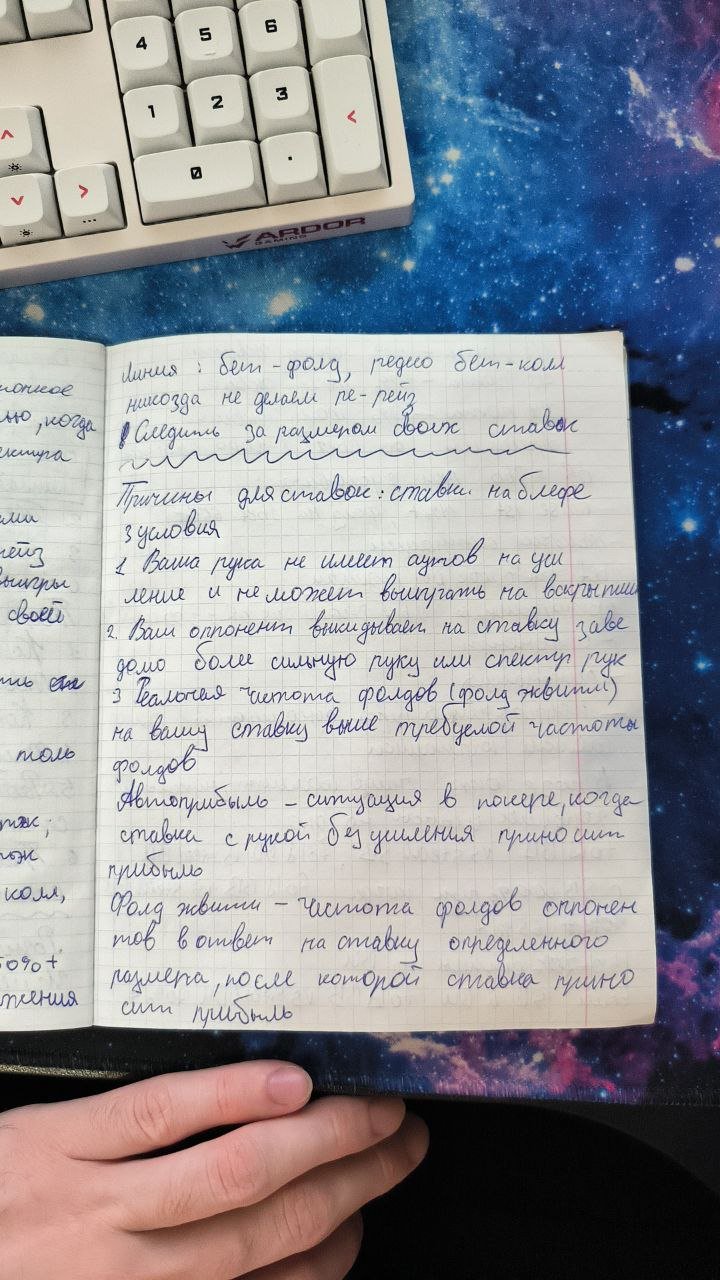 4 5 6
1 2 3 <
^
0 .
v >
ARDOR
GAMING
когда
своей
толь
колл,
50%+
жения
Линия : бет-фолд, редко бет-колл
никогда не делаем ре-рейз
! Следить за размером своих ставок
Причины для ставок: ставки на блефе
3 условия
1 Ваша рука не имеет аутов на уси
ление и не может выиграть на вскрытии
2. Ваш оппонент выкидывает на ставку заве
домо более сильную руку или спектр рук
3 Реальная частота фолдов (фолд эквити)
на вашу ставку выше требуемой частоты
фолдов
Автоприбыль – ситуация в покере, когда
ставка с рукой без усиления приносит
прибыль
Фолд эквити – частота фолдов оппонен
тов в ответ на ставку определенного
размера, после которой ставка прино
сит прибыль